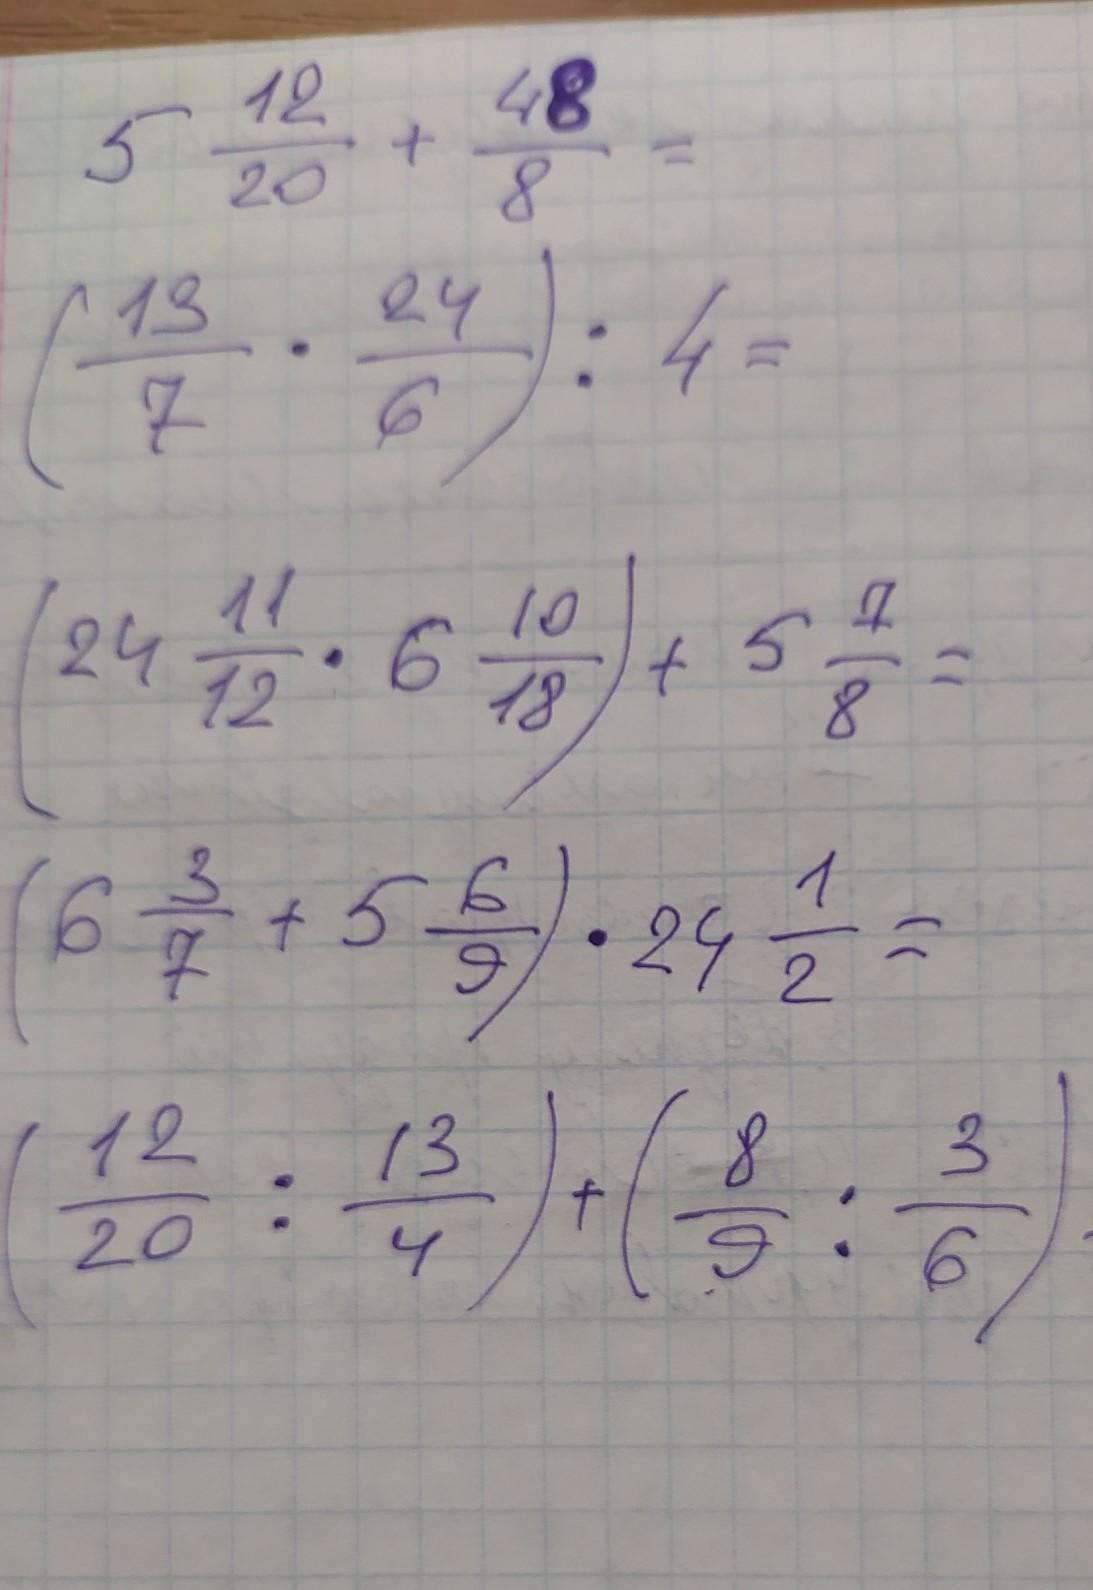 5 12/20 + 48/8 =
(13/7 · 24/6) : 4 =
(24 11/12 · 6 10/18) + 5 7/8 =
(6 3/7 + 5 6/9) · 24 1/2 =
(12/20 : 13/4) + (8/9 : 3/6)